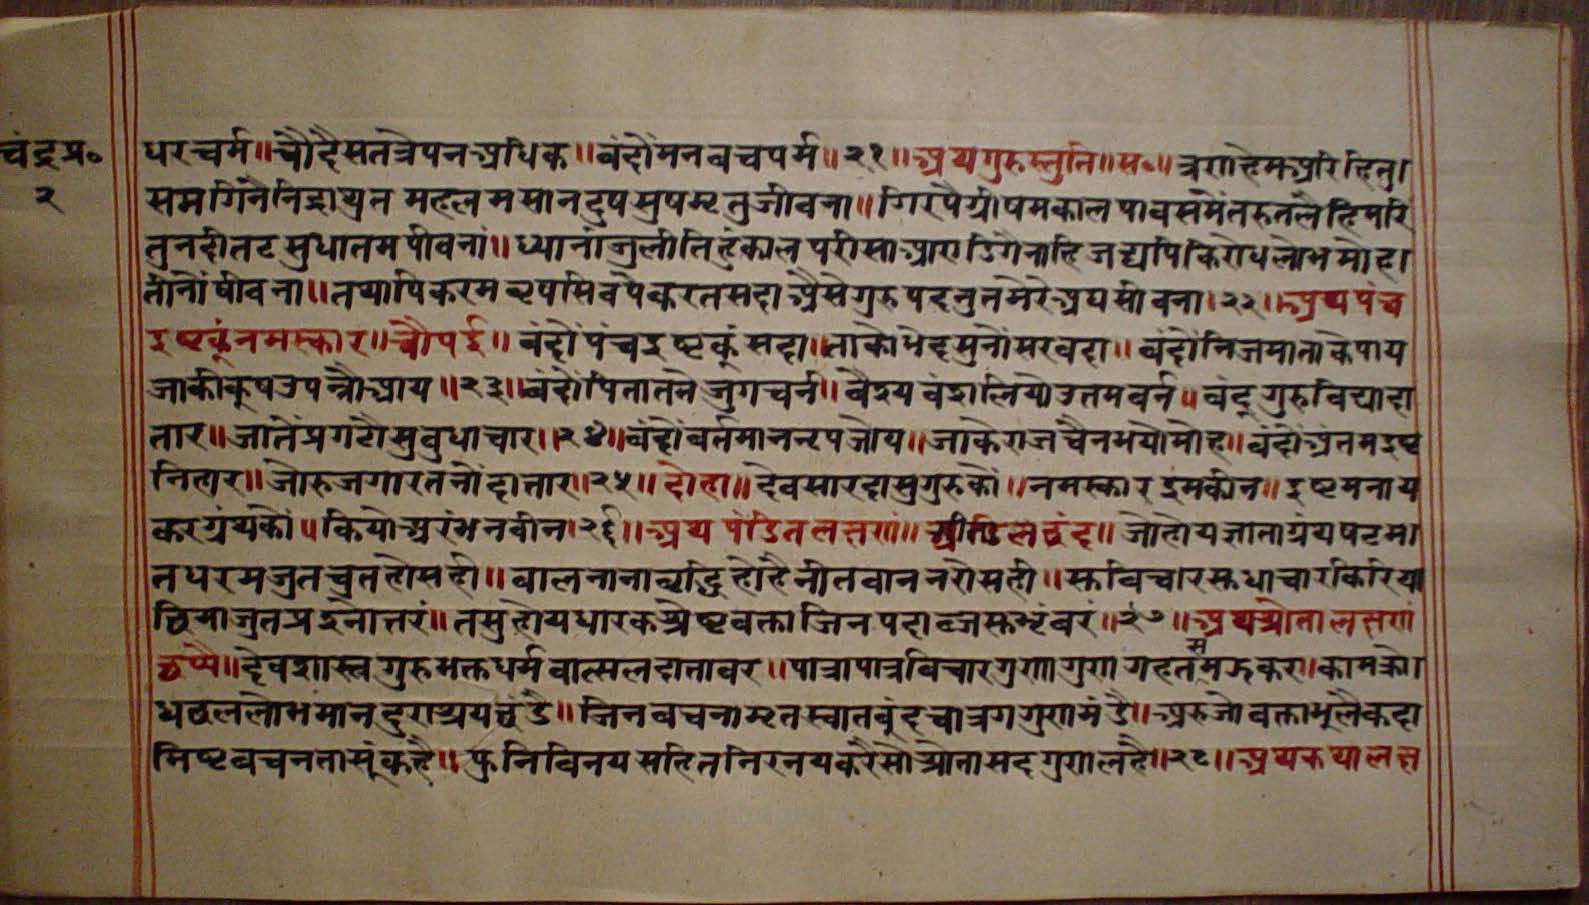 चंद्रप्र॰
२
धरचर्म॥ चौदैसतत्रेपनअधिक॥ बंदौंमनबचपर्म॥२१॥ अथगुरुस्तुति॥ स॰॥ त्रणहेमअरिहितु।
समगिनैनिद्राथुत महलमसानदुषसुषमृतुजीवना॥ गिरपैग्रीषमकालपावसमैंतरुतलैहिमरि
तुनदीतटसुधातमपीवनां॥ ध्यानांजुलीतिहुंकालपरीसाआएडिगैनाहिजद्यपिकिरोधलोभमोह।
तथापिकरम रूपसिवपैकरतसदाअैसेगुरुपदनुतमेरेअघसीवना।२२। अथपंच
इष्टकूंनमस्कार॥ चौपई॥ बंदौंपंचइष्टकूंसदा॥ ताकोभेदसुनौंसरवदा॥ बंदौंनिजमाताकेपाय
जाकीकूषउपन्नौआय॥२३॥ बंदौंपितातनेजुगचर्न॥ वैश्यवंशलियोउतमवर्न॥ बंदूगुरुविद्यादा
तार॥ जातेंप्रगटौसुबुधाचार॥२४॥ बंदौंवर्तमाननृपजोय॥ जाकेराजचैनभयोमोह॥ बंदौंअंतमइष्ट
निहार॥ जोरुजगारतनौंदातार॥२५॥ दोहा॥ देवसारदासुगुरुकौं॥ नमस्कारइमकीन॥ इष्टमनाय
करग्रंथकौं॥ कियोअरंभनवीन।२६॥ अथपंडितलक्षण॥ छंद॥ जोहोयज्ञाताग्रंथपटम।
तधरमजुतचुतहोसही॥ बालनानावृद्धिहोहैनीतवाननरोसही॥ स्कविचारस्कधाचारकिरिया
छिमाजुतप्रश्नोत्तरं॥ तसुहोयधारकश्रेष्टवक्ताजिनपदाब्जस्कभृंवरं॥२७॥ अथश्रोतालक्षण
छप्पै॥ देवशास्त्रगुरुभक्तधर्मवात्सलदातावर॥ पात्रापात्रविचारगुणगुण गहतसमझकर। कामक्रो।
धछललोभमांनदुराश्रयछंडै॥ जिनबचनामृतस्वातबुंदचात्रगगुणमंडै॥ अरुजोवक्ताभूलैकदा
मिष्टबचनतासूंकहै॥ फुनिविनयसहितनिरनयकरैसोश्रोतासदगुणलहै॥२८॥ अथकथालक्ष